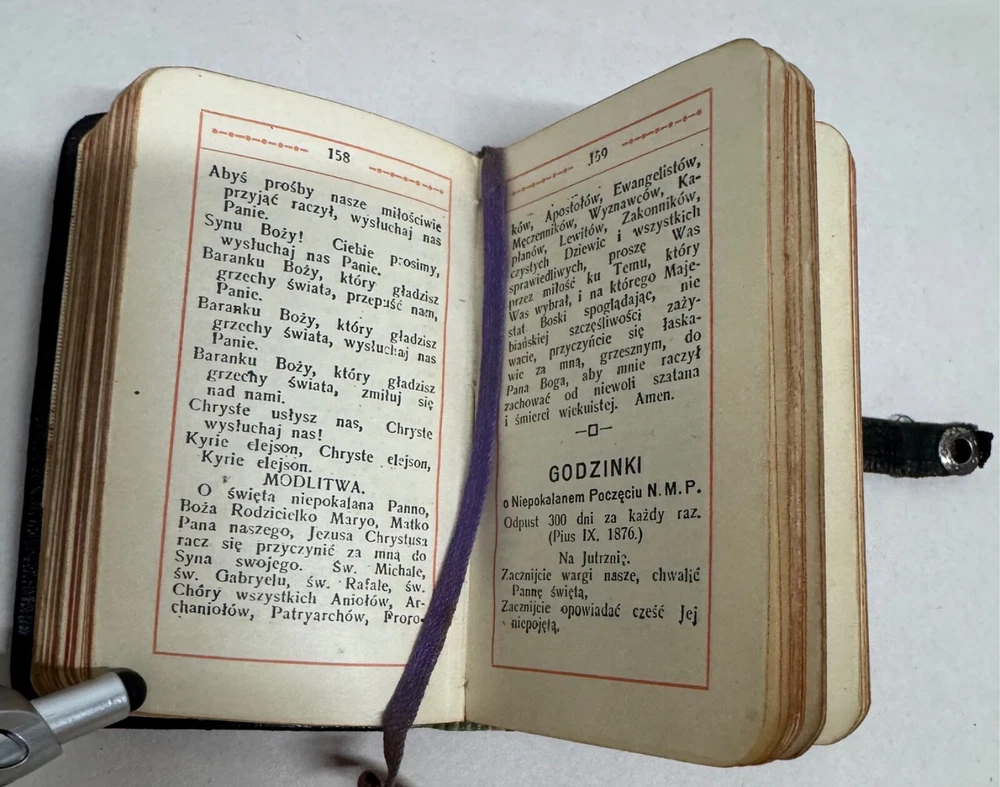 158
Abyś prośby nasze miłościwie
przyjąć raczył, wysłuchaj nas
Panie.
Synu Boży! Ciebie prosimy,
wysłuchaj nas Panie.
Baranku Boży, który gładzisz
grzechy świata, przepuść nam,
Panie.
Baranku Boży, który gładzisz
grzechy świata, wysłuchaj nas
Panie.
Baranku Boży, który gładzisz
grzechy świata, zmiłuj się
nad nami.
Chryste usłysz nas, Chryste
wysłuchaj nas!
Kyrie elejson, Chryste elejson,
Kyrie elejson.
MODLITWA.
O święta niepokalana Panno,
Boża Rodzicielko Maryo, Matko
Pana naszego, Jezusa Chrystusa
racz się przyczynić za mną do
Syna swojego. Św. Michale,
św. Gabryelu, św. Rafale, św.
Chóry wszystkich Aniołów, Ar-
chaniołów, Patryarchów, Proro-
159
ków, Apostołów, Ewangelistów,
Męczenników, Wyznawców, Ka-
płanów, Lewitów, Zakonników,
czystych Dziewic i wszystkich
sprawiedliwych, proszę Was
przez miłość ku Temu, który
Was wybrał, i na którego Maje-
stat Boski spoglądając, nie
biańskiej szczęśliwości zaży-
wacie, przyczyńcie się łaska-
wie za mną, grzesznym, do
Pana Boga, aby mnie raczył
zachować od niewoli szatana
i śmierci wiekuistej. Amen.
GODZINKI
o Niepokalanem Poczęciu N. M. P.
Odpust 300 dni za każdy raz.
(Pius IX. 1876.)
Na Jutrznię.
Zacznijcie wargi nasze, chwalić
Pannę świętą,
Zacznijcie opowiadać cześć Jej
niepojętą,